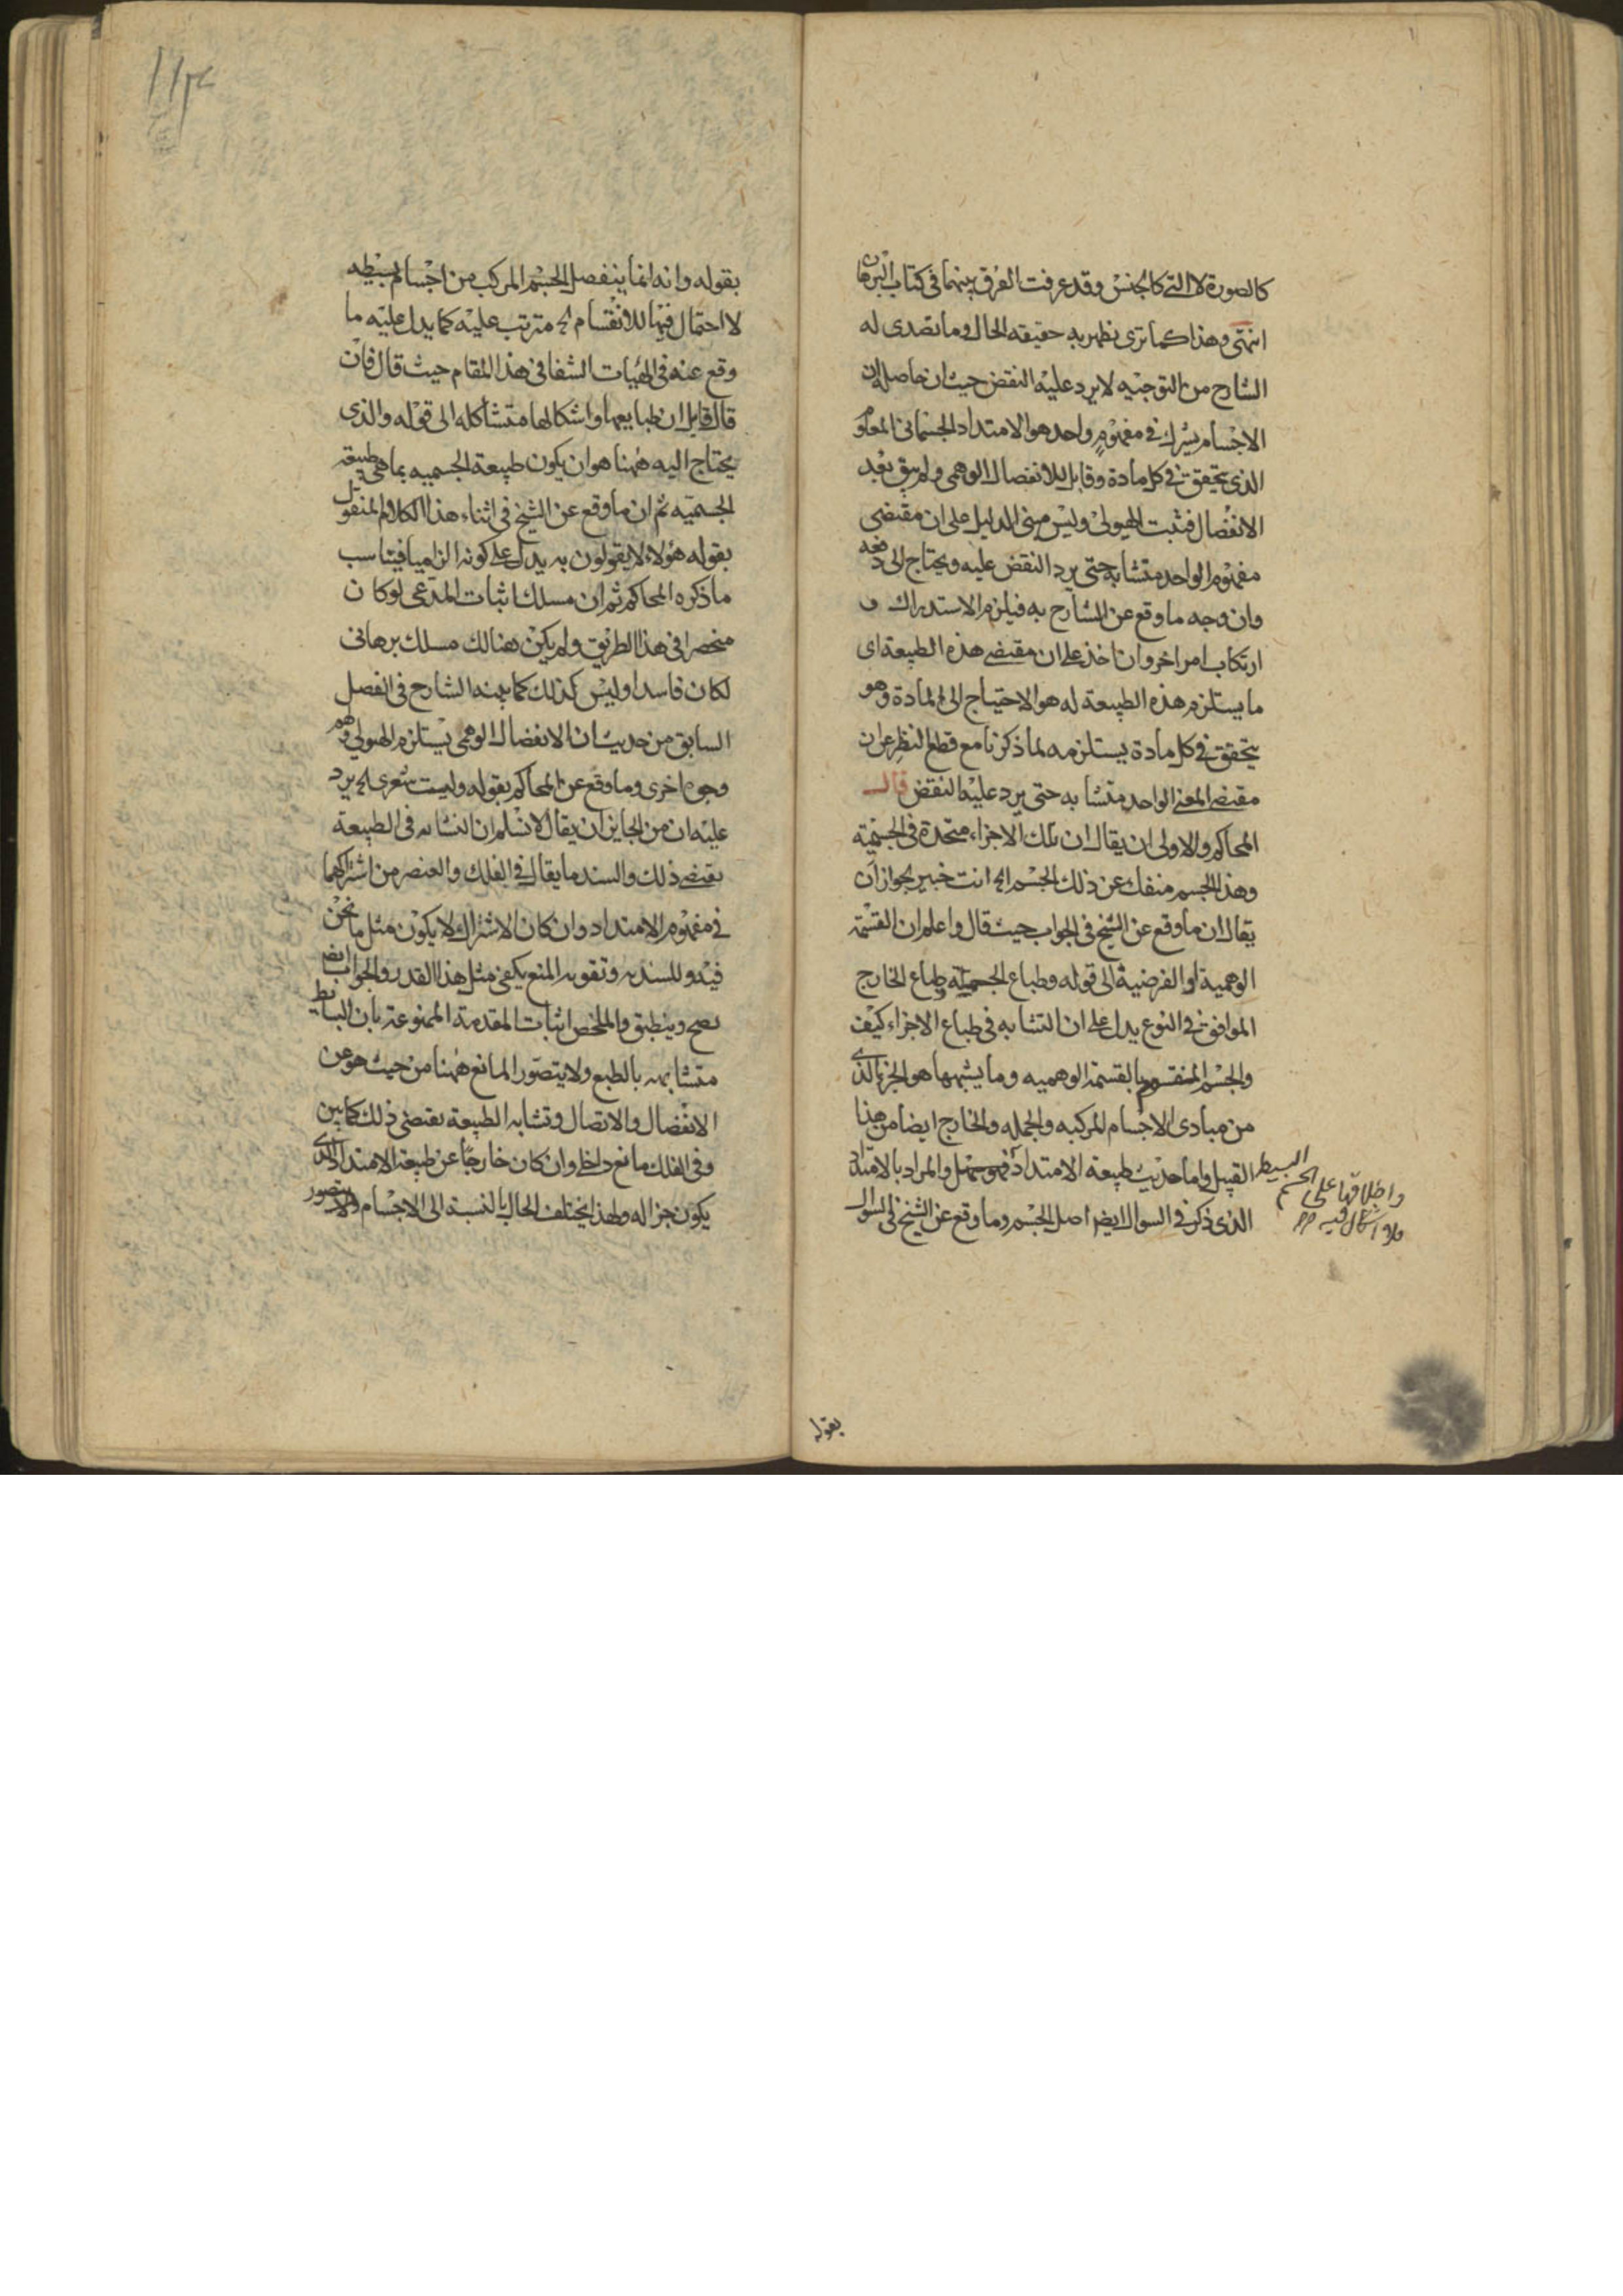 كالصورة لا التي كالجنس وقد عرفت الفرق بينهما في كتاب البرهان
انتهى وهذا كما ترى يظهر به حقيقه الحال وما تصدى له
الشارح من التوجيه لا يرد عليه النقض حيث ان حاصله ان
الاجسام يشترك في مفهوم واحد هو الامتداد الجسماني المعلوم
الذي يتحقق في كل مادة وقابل للانفصال الوهمي ولم يبق بعد
الانفصال فثبت الهيولى وليس مبنى الدليل على ان مقتضى
مفهوم الواحد متشابه حتى يرد النقض عليه ويحتاج الى دفعه
وان وجه ما وقع عن الشارح به فيلزم الاستدراك و
ارتكاب امر اخر وان اخذ على ان مقتضى هذه الطبيعة اى
ما يستلزم هذه الطبيعة له هو الاحتياج الى المادة وهو
يتحقق في كل مادة يستلزمه لما ذكرنا مع قطع النظر عن ان
مقتضى المعنى الواحد متشابه حتى يرد عليه النقض قال
المحاكم والاولى ان يقال ان تلك الاجزاء متحدة في الجسمية
وهذا الجسم منفك عن ذلك الجسم الخ انت خبير بجواز ان
يقال ان ما وقع عن الشيخ في الجواب حيث قال واعلم ان القسمة
الوهمية او الفرضية الى قوله وطباع الجملة وطباع الخارج
الموافق في النوع يدل على ان التشابه في طباع الاجزاء كيف
والجسم المنقسم بالقسمة الوهميه وما يشبهها هو الجزء الذي
من مبادى الاجسام المركبه والجمله والخارج ايضا من هذا
القبيل واما حديث طبيعة الامتداد فهو سهل والمراد بالامتداد
الذي ذكر في السوال ايضا اصل الجسم وما وقع عن الشيخ في السوال
البسيط
واطلاقها على الجسم
ولا اشكال فيه
بقوله
بقوله وانه انما ينفصل الجسم المركب من اجسام بسيطه
لا احتمال فيها للانقسام الخ مترتب عليه كما يدل عليه ما
وقع عنه في الهيات الشفا في هذا المقام حيث قال فان
قال قايل ان طبايعها واشكالها متشاكله الى قوله والذي
يحتاج اليه ههنا هو ان يكون طبيعة الجسميه بما هي طبيعة
الجسميه ثم ان ما وقع عن الشيخ في اثناء هذا الكلام المنقول
بقوله هؤلاء لا يقولون به يدل على كونه الزاميا فيناسب
ما ذكره المحاكم ثم ان مسلك اثبات المدعى لو كان
منحصرا في هذا الطريق ولم يكن هنالك مسلك برهانى
لكان فاسدا وليس كذلك كما بينه الشارح في الفصل
السابق من حديث ان الانفصال الوهمي يستلزم الهيولى
وجوه اخرى وما وقع عن المحاكم بقوله وليت شعرى الخ يرد
عليه ان من الجايز ان يقال لا نسلم ان التشابه في الطبيعة
يقتضى ذلك والسند ما يقال في الفلك والعنصر من اشتراكهما
في مفهوم الامتداد وان كان الاشتراك لا يكون مثل ما نحن
فيه وللسنديه وتقويه المنع يكفى مثل هذا القدر والجواب ايضا
يصح وينطبق والملخص اثبات المقدمة الممنوعة بان البسايط
متشابهه بالطبع ولا يتصور المانع ههنا من حيث هو عن
الانفصال والاتصال وتشابه الطبيعة يقتضى ذلك كما بين
وفي الفلك مانع داخل وان كان خارجا عن طبيعة الامتداد الذي
يكون جزا له ولهذا يختلف الحال بالنسبة الى الاجسام ولا يتصور